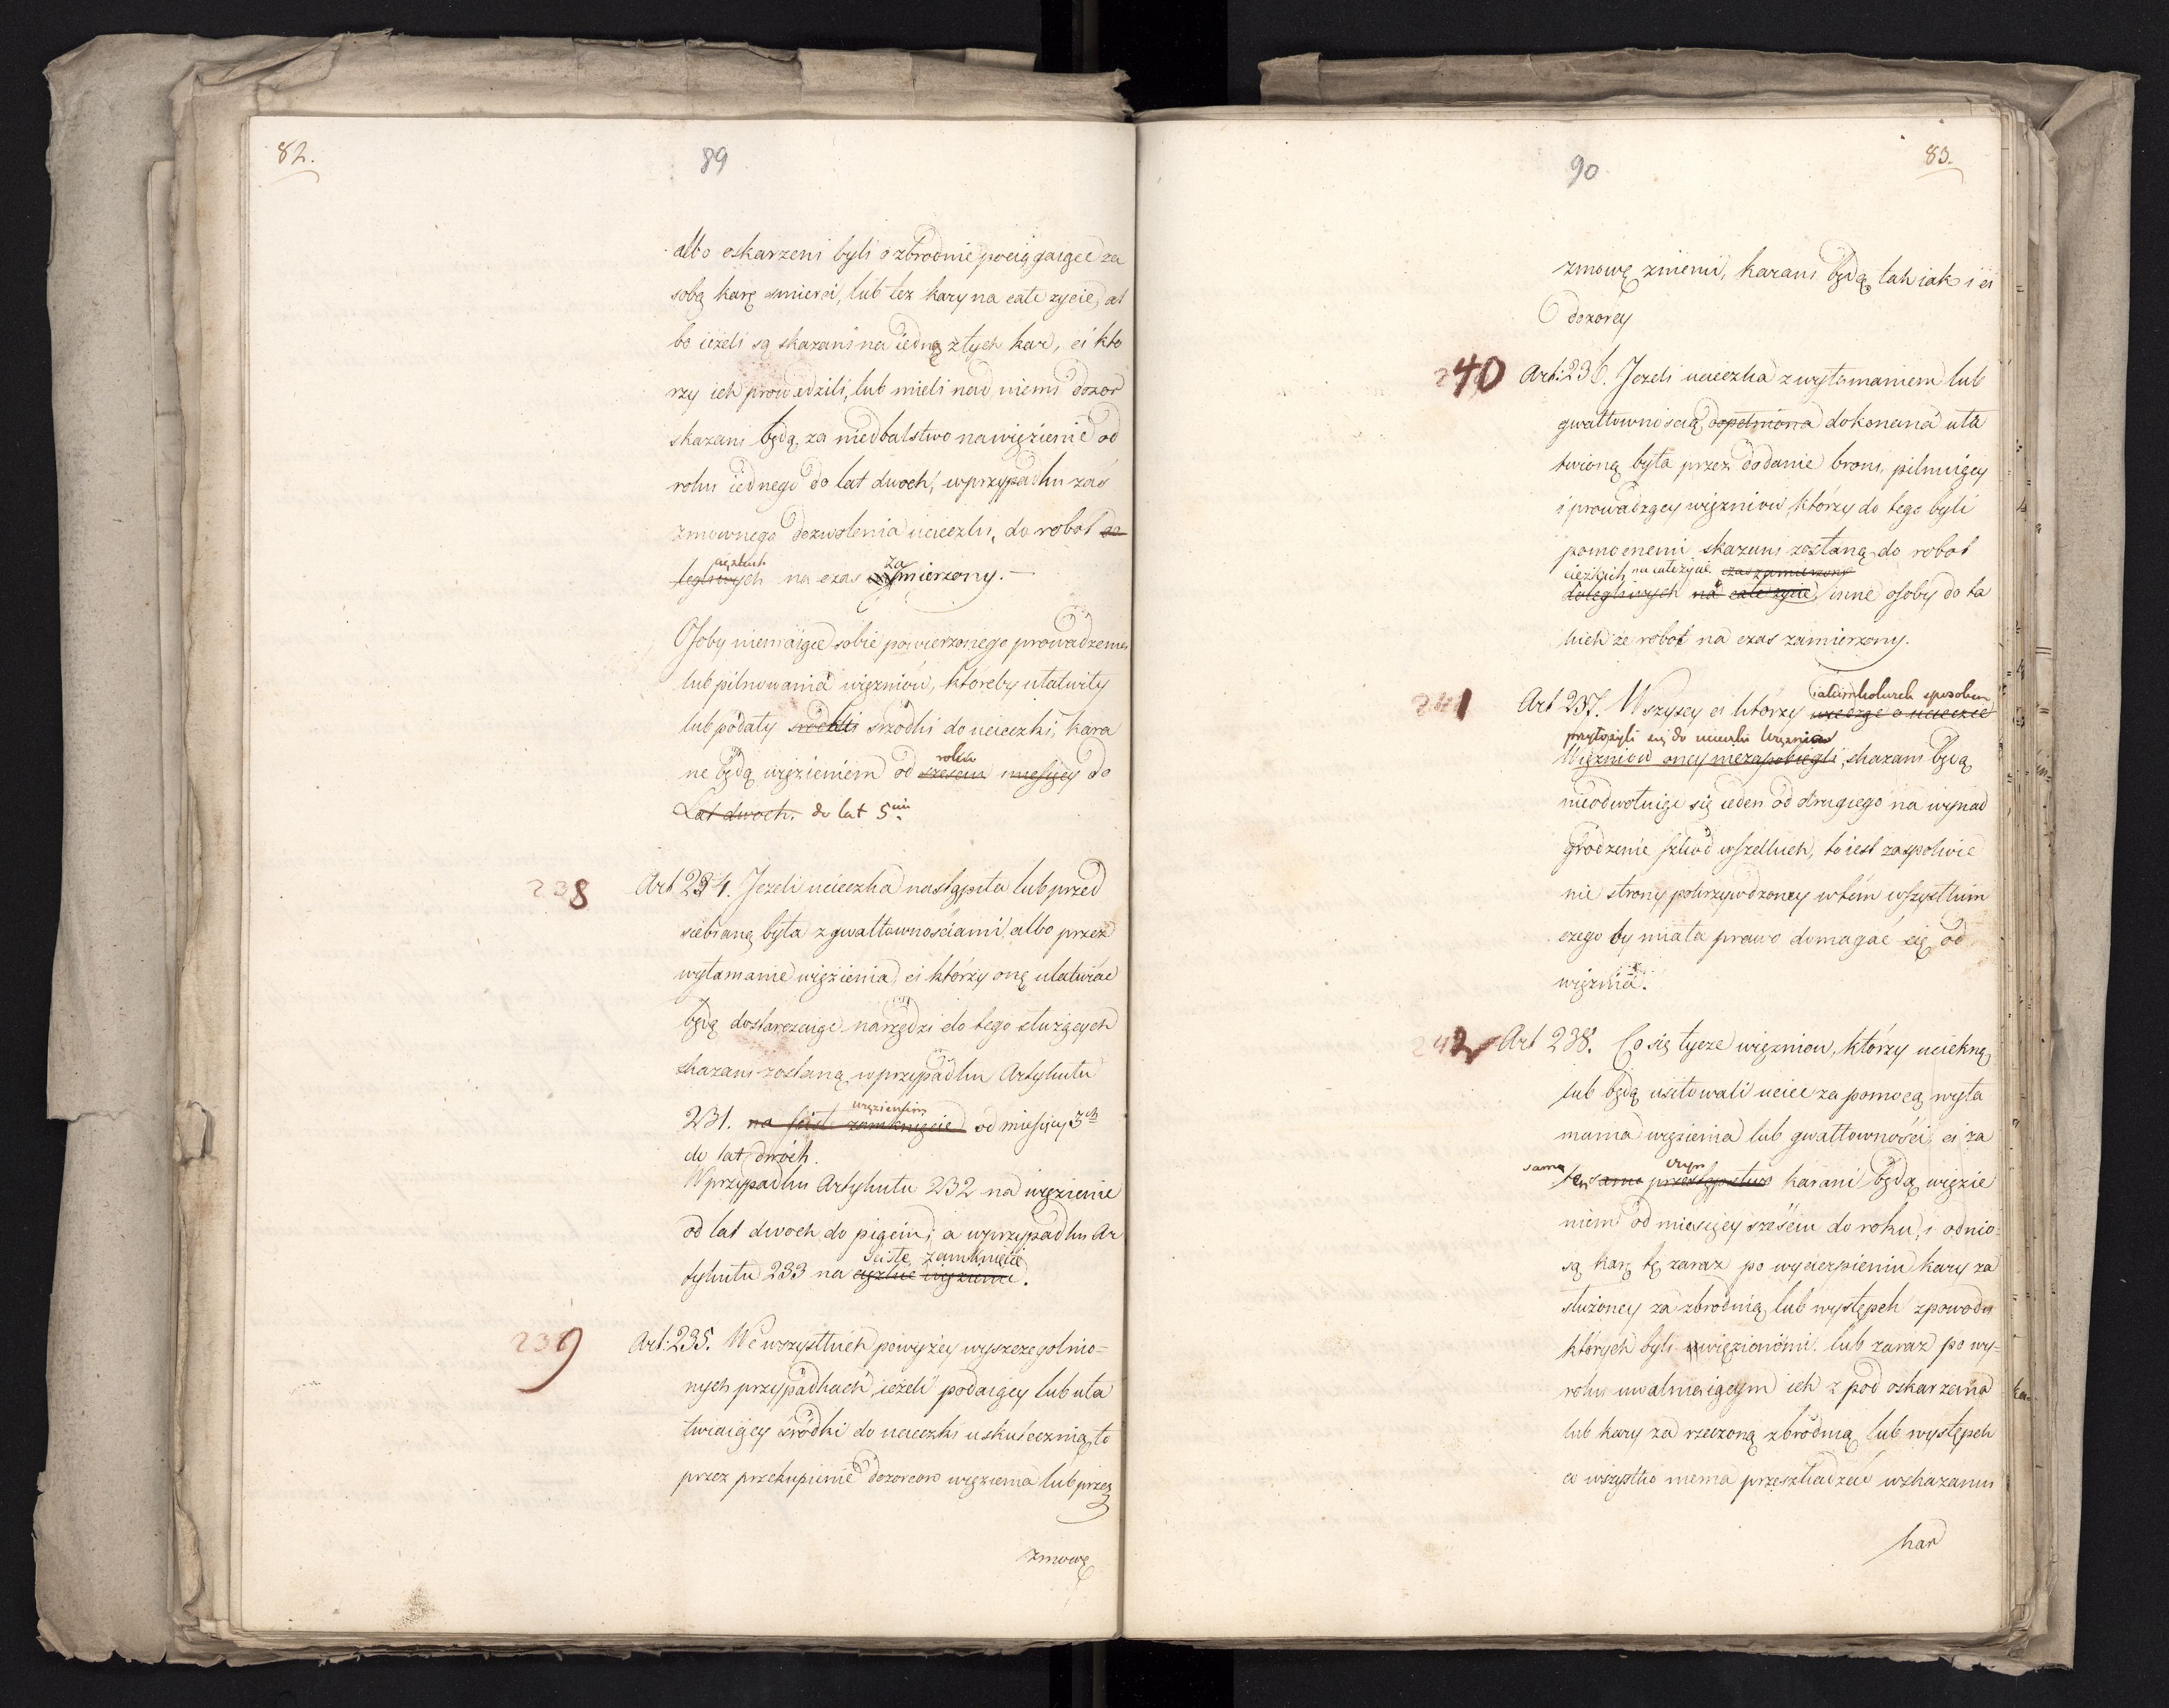 82.
89
albo oskarzeni byli o zbrodnie pociągaiące za
sobą karę smierci, lub tez kary na całe zycie, al
bo ieżeli są skazani na iedną z tych kar, ci kto
rzy ich prowadzili, lub mieli nad niemi dozor
skazani będą za niedbalstwo na więzienie od
roku iednego do lat dwoch, w przypadku zaś
zmownego dozwolenia ucieczki, do robot do
ciężkich za
legliwych na czas wymierzony.
Osoby niemaiące sobie powierzonego prowadzenia
lub pilnowania więzniów, któreby ułatwiły
lub podały srodki srzodki do ucieczki, kara
roku
ne będą więzieniem od szesciu miesięcy do
Lat dwoch. do lat 5ciu
238 Art 234. Jezeli ucieczka nastąpiła lub przed
siebraną była z gwałtownościami albo przez
wyłamanie więzienia, ci którzy onę ułatwiać
będą dostarczaiąc narzędzi do tego służących
skazani zostaną w przypadku Artykułu
więzieniem
231. na ścisłe zamknięcie od miesięcy 3ch
do lat dwóch.
W przypadku Artykułu 232 na więzienie
od lat dwoch do pięciu; a w przypadku Ar
ścisłe zamknięcie
tykułu 233 na ciężkie więzienie.
239 Art: 235. We wszystkich powyżey wyszczegolnio=
nych przypadkach, ieżeli podaiący lub uła
twiaiący śródki do ucieczki uskutecznią to
przez przekupienie dozorcow więzienia lub przez
zmowę
90
83.
zmowę zniemi, karani będą tak iak i ci
dozorcy
240 Art: 236. Jezeli ucieczka z wyłamaniem lub
gwałtownoscią dopełniona dokonana uła
twioną była przez dodanie broni, pilnuiący
i prowadzący więzniow którzy do tego byli
pomocnemi skazani zostaną do robot
cieżkich na całe życie czas zamierzony
dolegliwych na całe życie, inne osoby do ta
kich że robot na czas zamierzony.
241 Art 237. Wszyscy ci którzy iakimkolwiek sposobem wiedząc o ucieczce
przyłożyli się do ucieczki Więzniow
Więzniow oney niezapobiegli, skazani będą
nieodwołuiąc się ieden od drugiego na wynad
grodzenie szkod wszelkich, to iest zaspokoie
nie strony pokrzywdzoney w tém wszystkim
czego by miała prawo domagać się od
więznia.
242 Art 238. Co się tycze więzniow, którzy uciekną
lub będą usiłowali uciec za pomocą wyła
mania więzienia lub gwałtowności, ci za
sama czyn
ten samo przestępstwo karani będą więzie
niem od miesięcy sześciu do roku, i odnio=
są karę tę zaraz po wycierpieniu kary za
służoney za zbrodnią lub występek zpowodu
ktorych byli uwięzionemi. lub zaraz po wy=
roku uwalniaiącym ich z pod oskarzenia
lub kary za rzeczoną zbrodnią lub występek
co wszystko niema przeszkadzać wskazaniu
kar